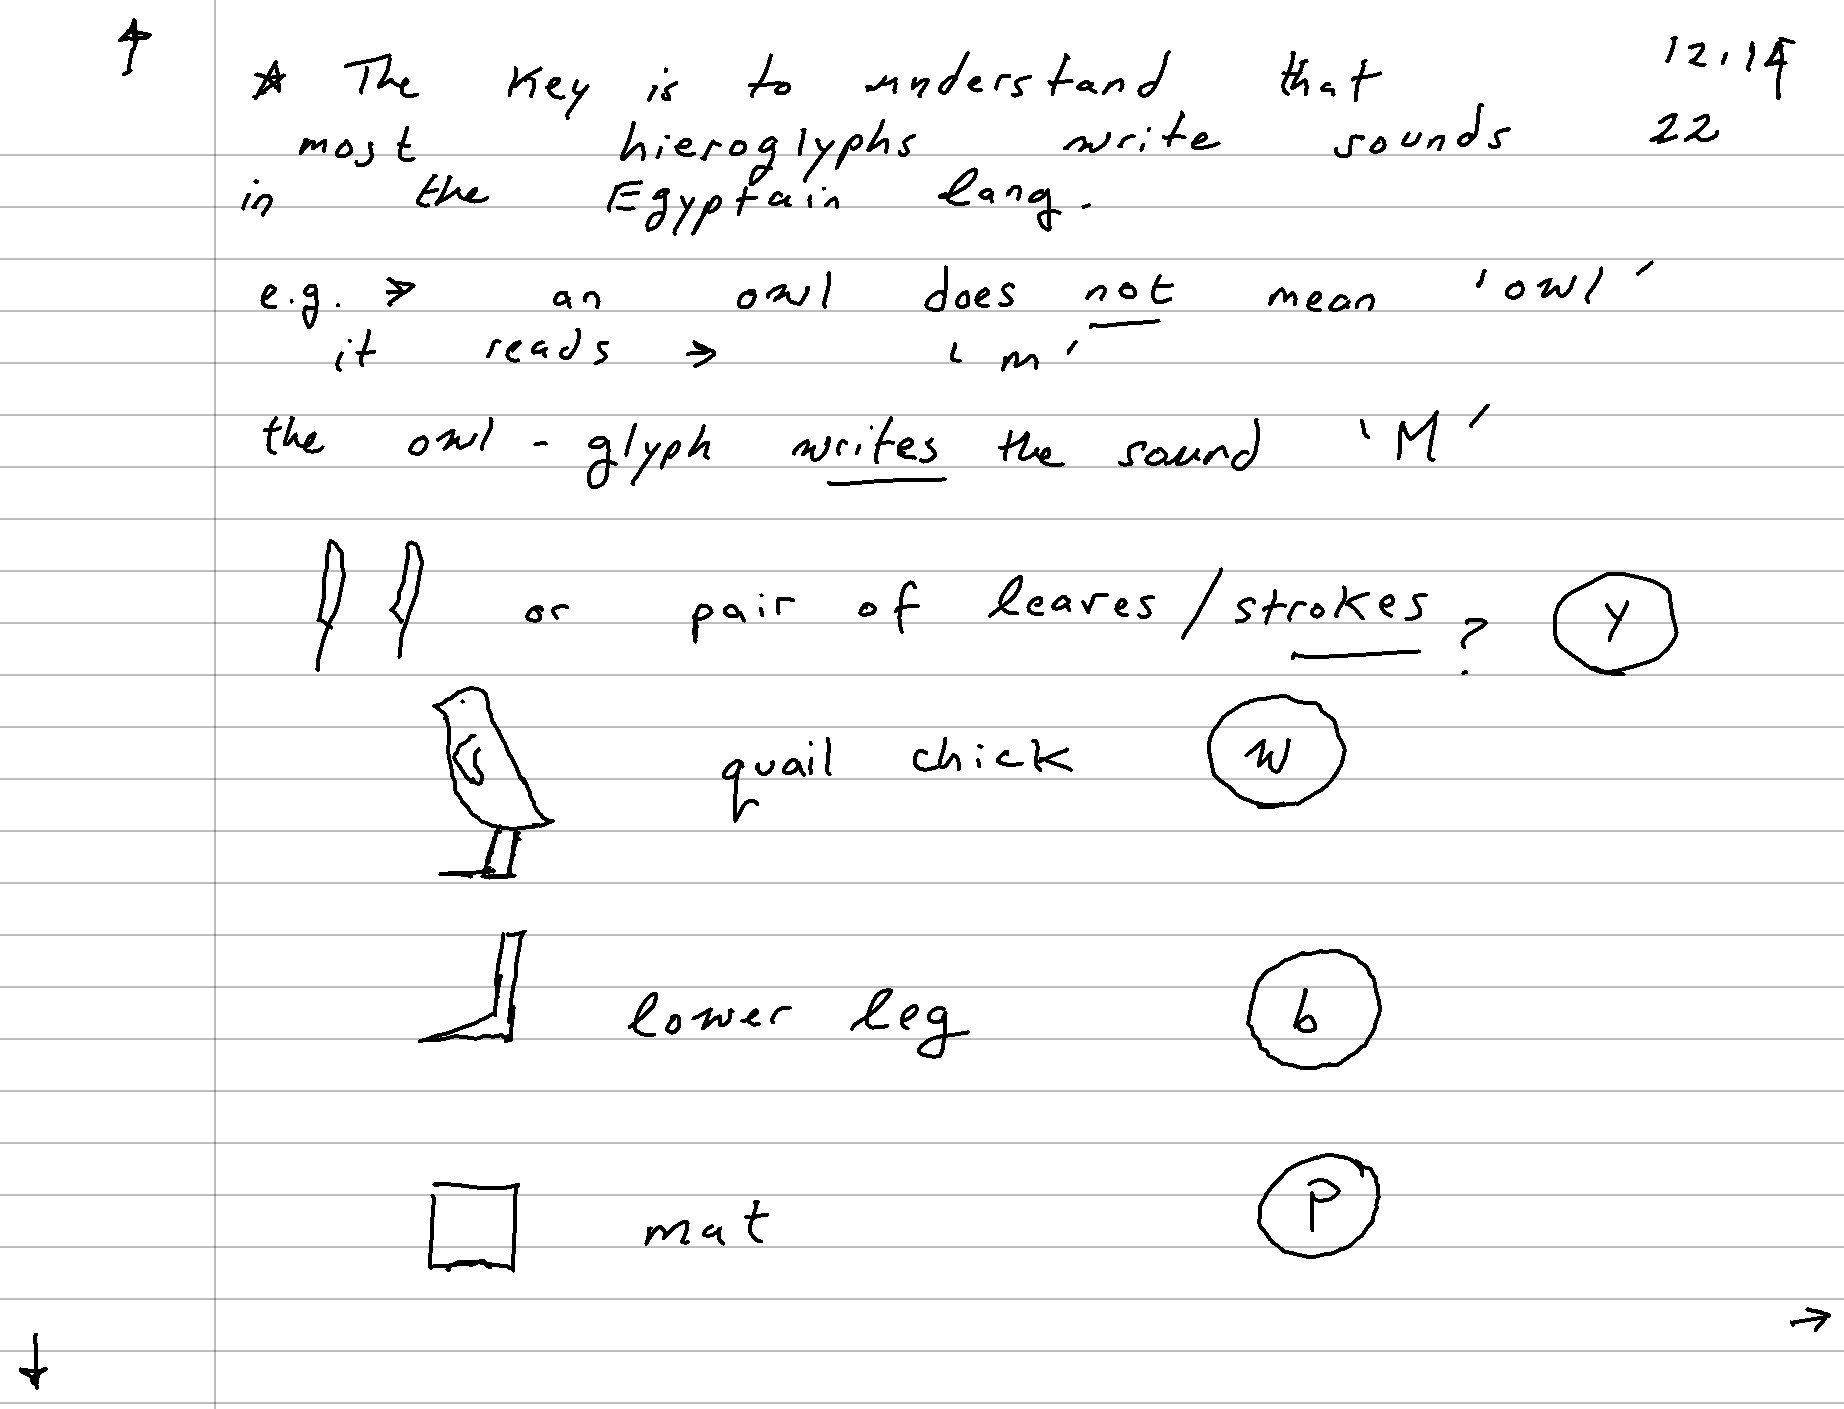 ☆ The Key is to understand that 12.14
most hieroglyphs write sounds 22
in the Egyptain lang.
e.g. → an owl does not mean 'owl'
it reads → 'm'
the owl - glyph writes the sound 'M'
or pair of leaves / strokes ? Y
quail chick W
lower leg b
mat P